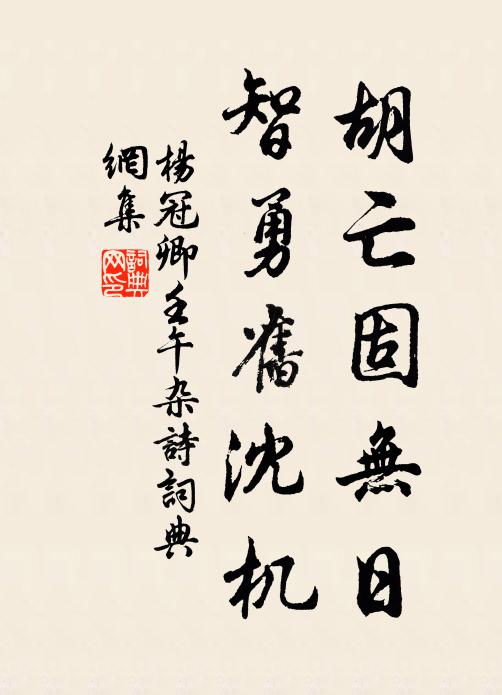 胡亡固無日
智勇奮沈机
楊冠卿壬午杂詩詞典
網集
詞典网印